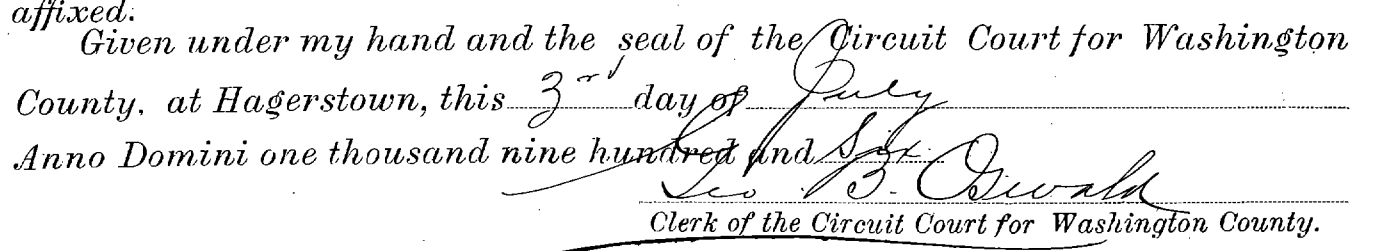 affixed.
Given under my hand and the seal of the Circuit Court for Washington
County, at Hagerstown, this 3rd day of July
Anno Domini one thousand nine hundred and Six.
Geo. B. Oswald
Clerk of the Circuit Court for Washington County.